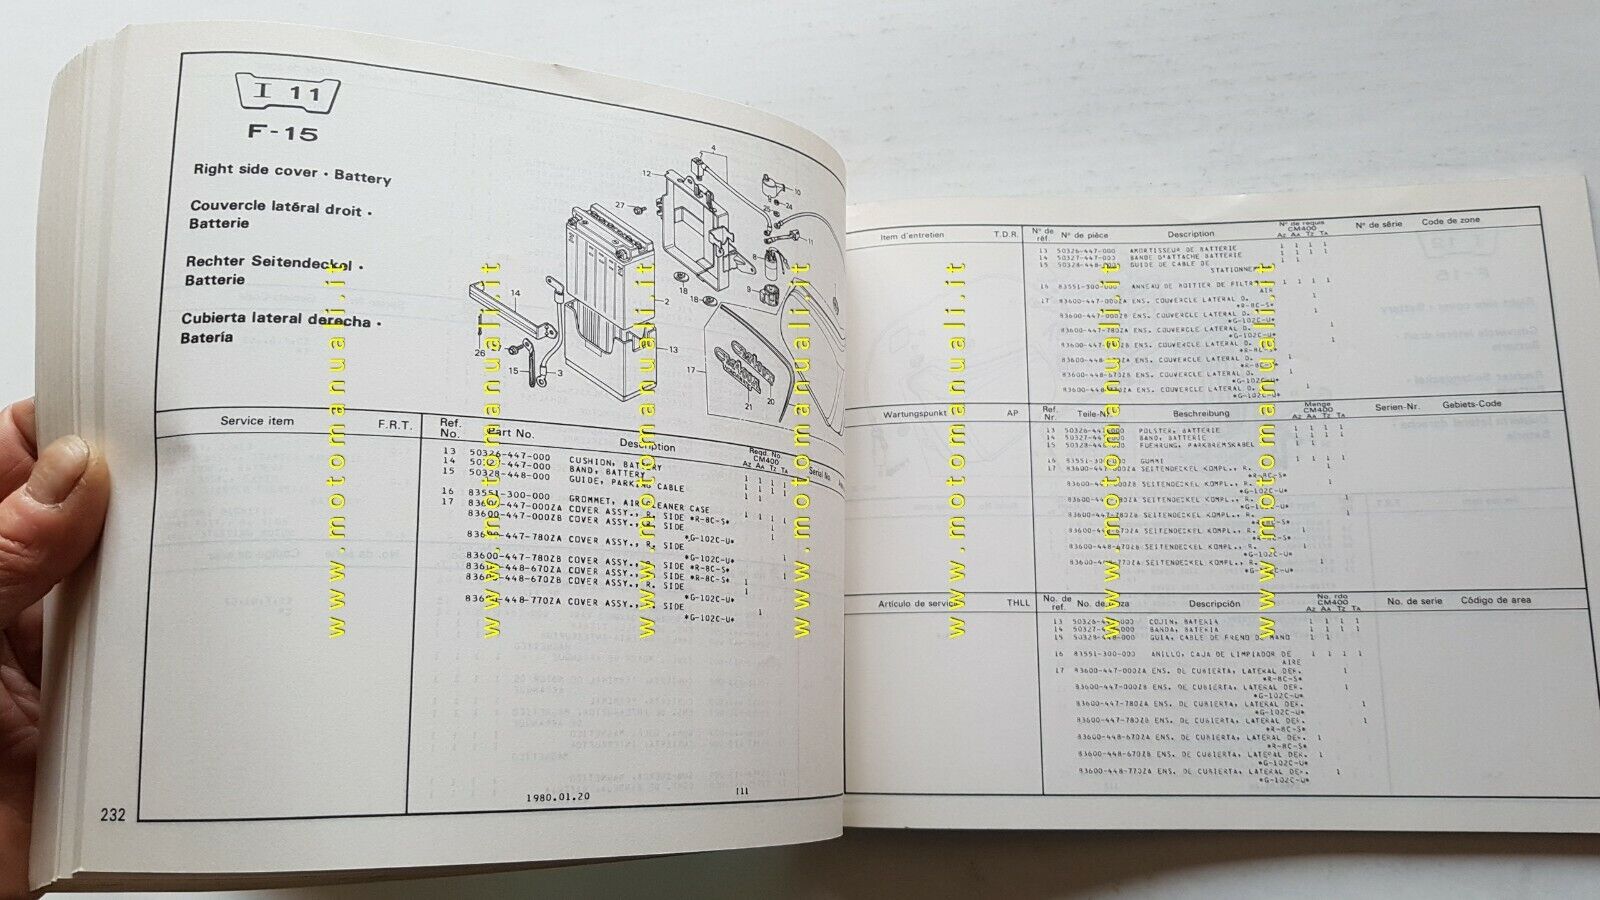 I 11
F-15
Right side cover · Battery
Couvercle latéral droit ·
Batterie
Rechter Seitendeckel ·
Batterie
Cubierta lateral derecha ·
Batería
4
12
10
27
24
25
11
8
9
18
18
2
14
13
17
26
27
15
3
20
21
Service item F.R.T. Ref. No. Part No. Description Reqd. No. CM400 Serial No.
Az Aa Tz Ta
13 50326-447-000 CUSHION, BATTERY 1 1 1 1
14 50327-447-000 BAND, BATTERY 1 1 1 1
15 50328-448-000 GUIDE, PARKING CABLE 1 1
16 83551-300-000 GROMMET, AIR CLEANER CASE 1 1 1 1
17 83600-447-000ZA COVER ASSY., R. SIDE *R-8C-S* 1
83600-447-000ZB COVER ASSY., R. SIDE
*G-102C-U* 1
83600-447-780ZA COVER ASSY., R. SIDE
*G-102C-U* 1
83600-447-780ZB COVER ASSY., R. SIDE *R-8C-S* 1
83600-448-670ZA COVER ASSY., R. SIDE *R-8C-S* 1
83600-448-670ZB COVER ASSY., R. SIDE
*G-102C-U* 1
83600-448-770ZA COVER ASSY., R. SIDE
*G-102C-U* 1
1980.01.20 I11
232
Item d'entretien T.D.R. N° de réf. N° de pièce Description N° de requis CM400 N° de série Code de zone
Az Aa Tz Ta
13 50326-447-000 AMORTISSEUR DE BATTERIE 1 1 1 1
14 50327-447-000 BANDE D'ATTACHE BATTERIE 1 1 1 1
15 50328-448-000 GUIDE DE CABLE DE 1 1
16 83551-300-000 ANNEAU DE BOITIER DE FILTRE 1 1 1 1
AIR
17 83600-447-000ZA ENS. COUVERCLE LATERAL D.
*R-8C-S*
83600-447-000ZB ENS. COUVERCLE LATERAL D.
*G-102C-U*
83600-447-780ZA ENS. COUVERCLE LATERAL D.
*G-102C-U*
83600-447-780ZB ENS. COUVERCLE LATERAL D.
*R-8C-S*
83600-448-670ZA ENS. COUVERCLE LATERAL D.
*R-8C-S*
83600-448-670ZB ENS. COUVERCLE LATERAL D.
*G-102C-U*
83600-448-770ZA ENS. COUVERCLE LATERAL D.
*G-102C-U*
Wartungspunkt AP Ref. Nr. Teile-Nr. Beschreibung Menge CM400 Serien-Nr. Gebiets-Code
Az Aa Tz Ta
13 50326-447-000 POLSTER, BATTERIE 1 1 1 1
14 50327-447-000 BAND, BATTERIE 1 1 1 1
15 50328-448-000 FUEHRUNG, PARKBREMSKABEL 1 1
16 83551-300-000 GUMMI 1 1 1 1
17 83600-447-000ZA SEITENDECKEL KOMPL., R.
*R-8C-S*
83600-447-000ZB SEITENDECKEL KOMPL., R.
*G-102C-U*
83600-447-780ZA SEITENDECKEL KOMPL., R.
*G-102C-U*
83600-447-780ZB SEITENDECKEL KOMPL., R.
*R-8C-S*
83600-448-670ZA SEITENDECKEL KOMPL., R.
*R-8C-S*
83600-448-670ZB SEITENDECKEL KOMPL., R.
*G-102C-U*
83600-448-770ZA SEITENDECKEL KOMPL., R.
*G-102C-U*
Artículo de servicio THLL No. de ref. No. de pieza Descripción No. rdo CM400 No. de serie Código de area
Az Aa Tz Ta
13 50326-447-000 COJIN, BATERIA 1 1 1 1
14 50327-447-000 BANDA, BATERIA 1 1 1 1
15 50328-448-000 GUIA, CABLE DE FRENO DE MANO 1 1
16 83551-300-000 ANILLO, CAJA DE LIMPIADOR DE 1 1 1 1
AIRE
17 83600-447-000ZA ENS. DE CUBIERTA, LATERAL DER. 1
*R-8C-S*
83600-447-000ZB ENS. DE CUBIERTA, LATERAL DER. 1
*G-102C-U*
83600-447-780ZA ENS. DE CUBIERTA, LATERAL DER. 1
*G-102C-U*
83600-447-780ZB ENS. DE CUBIERTA, LATERAL DER. 1
*R-8C-S*
83600-448-670ZA ENS. DE CUBIERTA, LATERAL DER. 1
*R-8C-S*
83600-448-670ZB ENS. DE CUBIERTA, LATERAL DER. 1
*G-102C-U*
83600-448-770ZA ENS. DE CUBIERTA, LATERAL DER. 1
*G-102C-U*
www.motomanuali.it
www.motomanuali.it
www.motomanuali.it
www.motomanuali.it
www.motomanuali.it
www.motomanuali.it
www.motomanuali.it